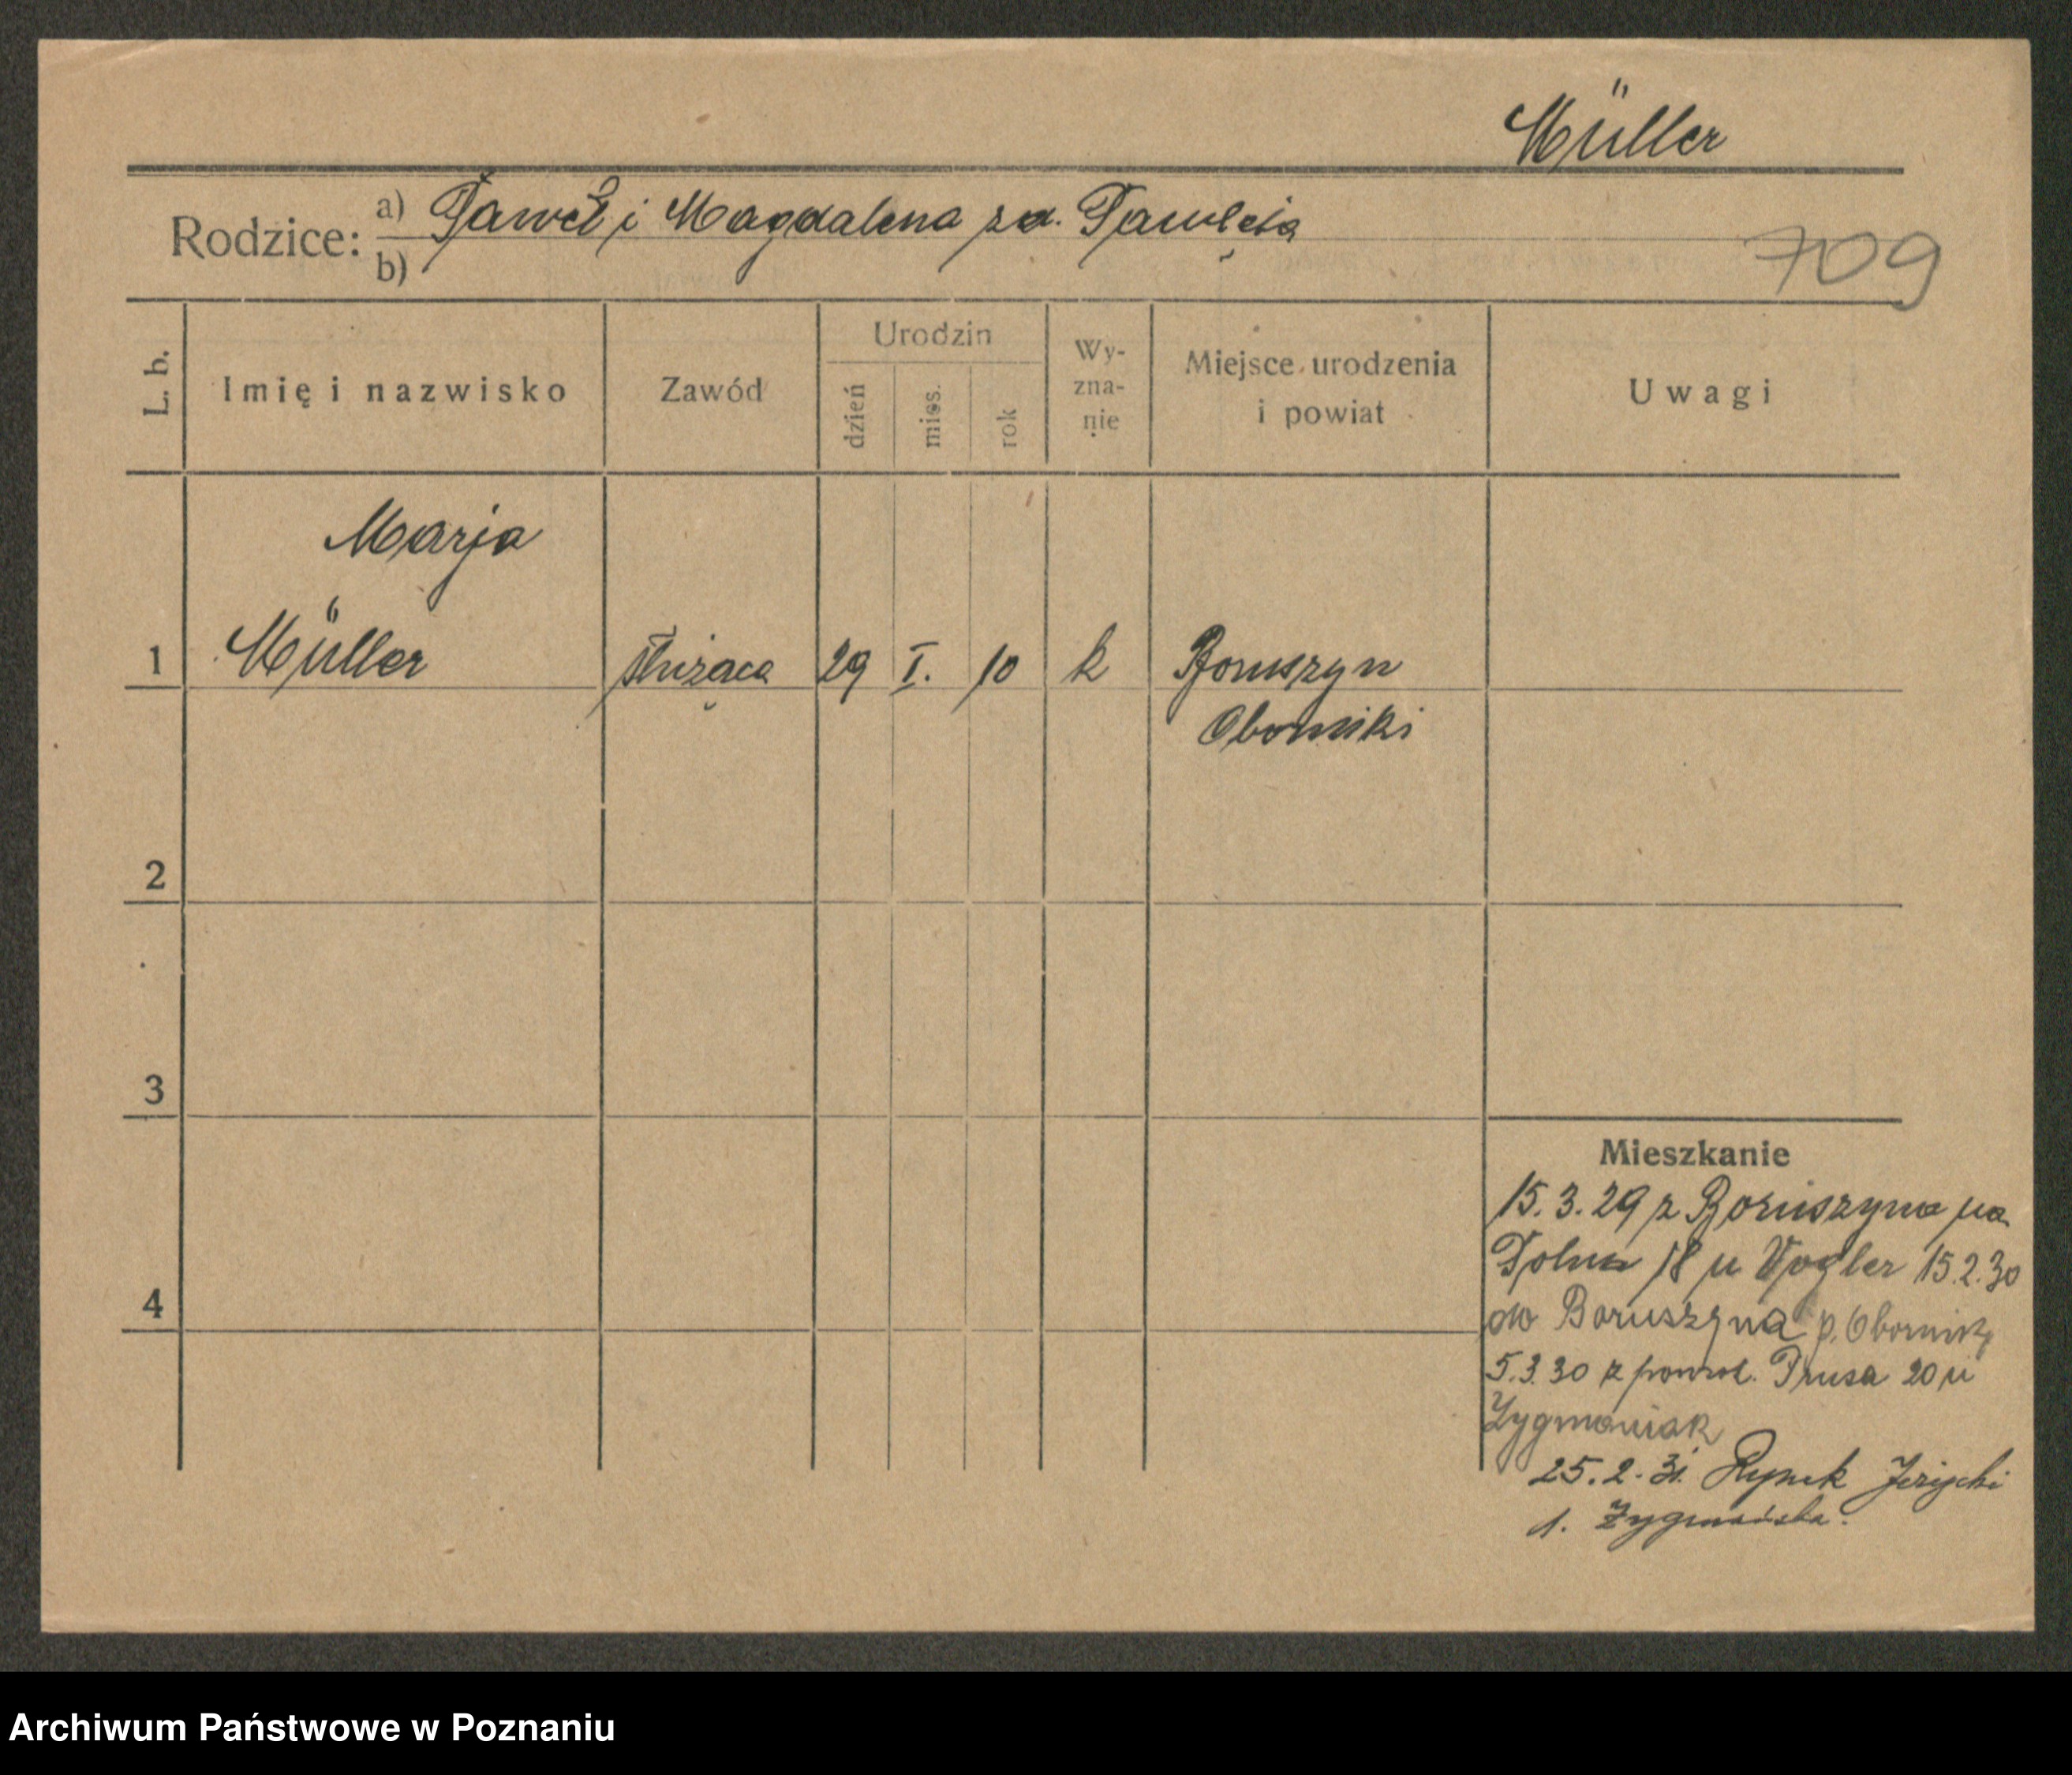 Müller
Rodzice: a) Paweł i Magdalena zd. Pawlęta
b)
709
L. b.
Imię i nazwisko
Zawód
Urodzin
dzień
mies.
rok
Wy-
zna-
nie
Miejsce urodzenia
i powiat
Uwagi
Marja
1 Müller służąca 29 I. 10 k Boruszyn
Oborniki
2
3
4
Mieszkanie
15.3.29 z Boruszyna na
18 u Vogler 15.2.30
do Boruszyna p. Oborniki
5.3.30 z powrot. Prusa 20 u
Zygmaniak
25.2.31. Rynek Jeżycki
1.
Archiwum Państwowe w Poznaniu